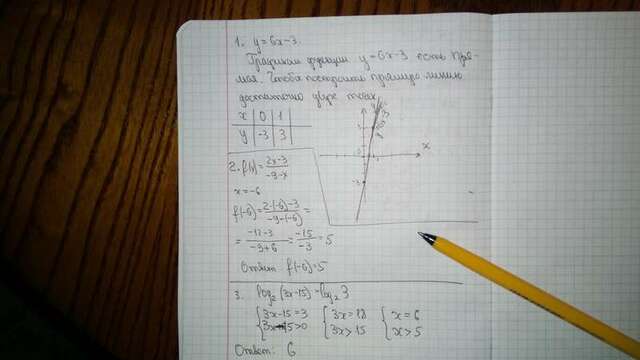 1. y=6x-3.
Графиком функции y=6x-3 есть пря-
мая. Чтобы построить прямую линию
достаточно двух точек
x | 0 | 1
y | -3 | 3
x
2. f(x)=\frac{2x-3}{-9-x}
x=-6
f(-6)=\frac{2·(-6)-3}{-9-(-6)}=
=\frac{-12-3}{-9+6}=\frac{-15}{-3}=5
Ответ: f(-6)=5
3. log₂(3x-15)=log₂3
{3x-15=3 {3x=18 {x=6
{3x-15>0 {3x>15 {x>5
Ответ: 6